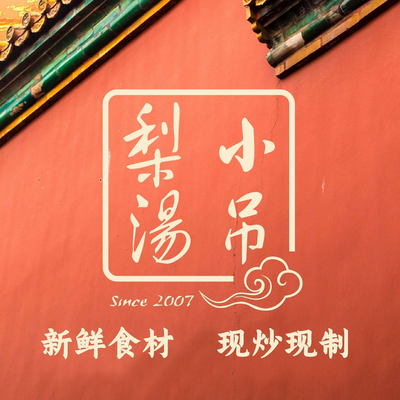 小吊
梨湯
Since 2007
新鲜食材 现炒现制